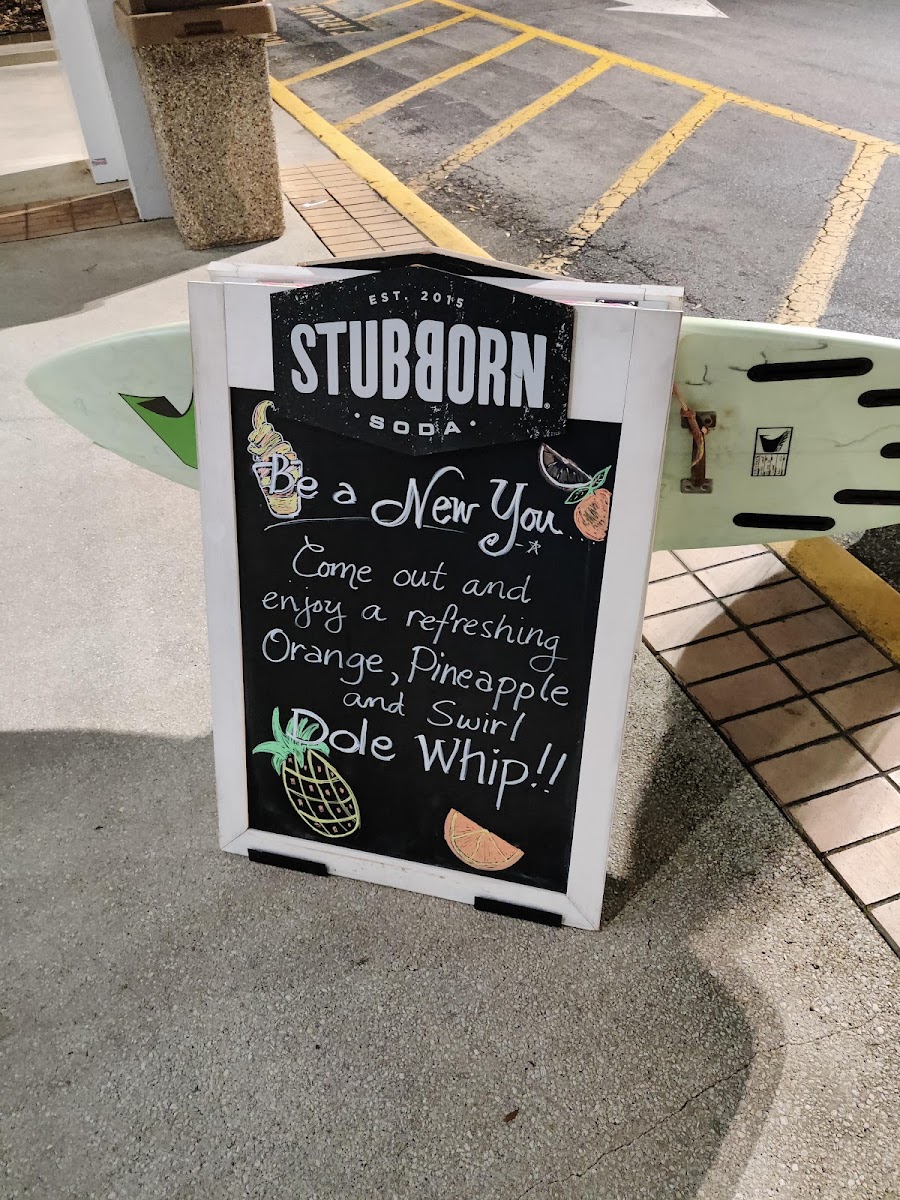 EST. 2015
STUBBORN
SODA
Be a New You
Come out and
enjoy a refreshing
Orange, Pineapple
and Swirl
Dole Whip!!